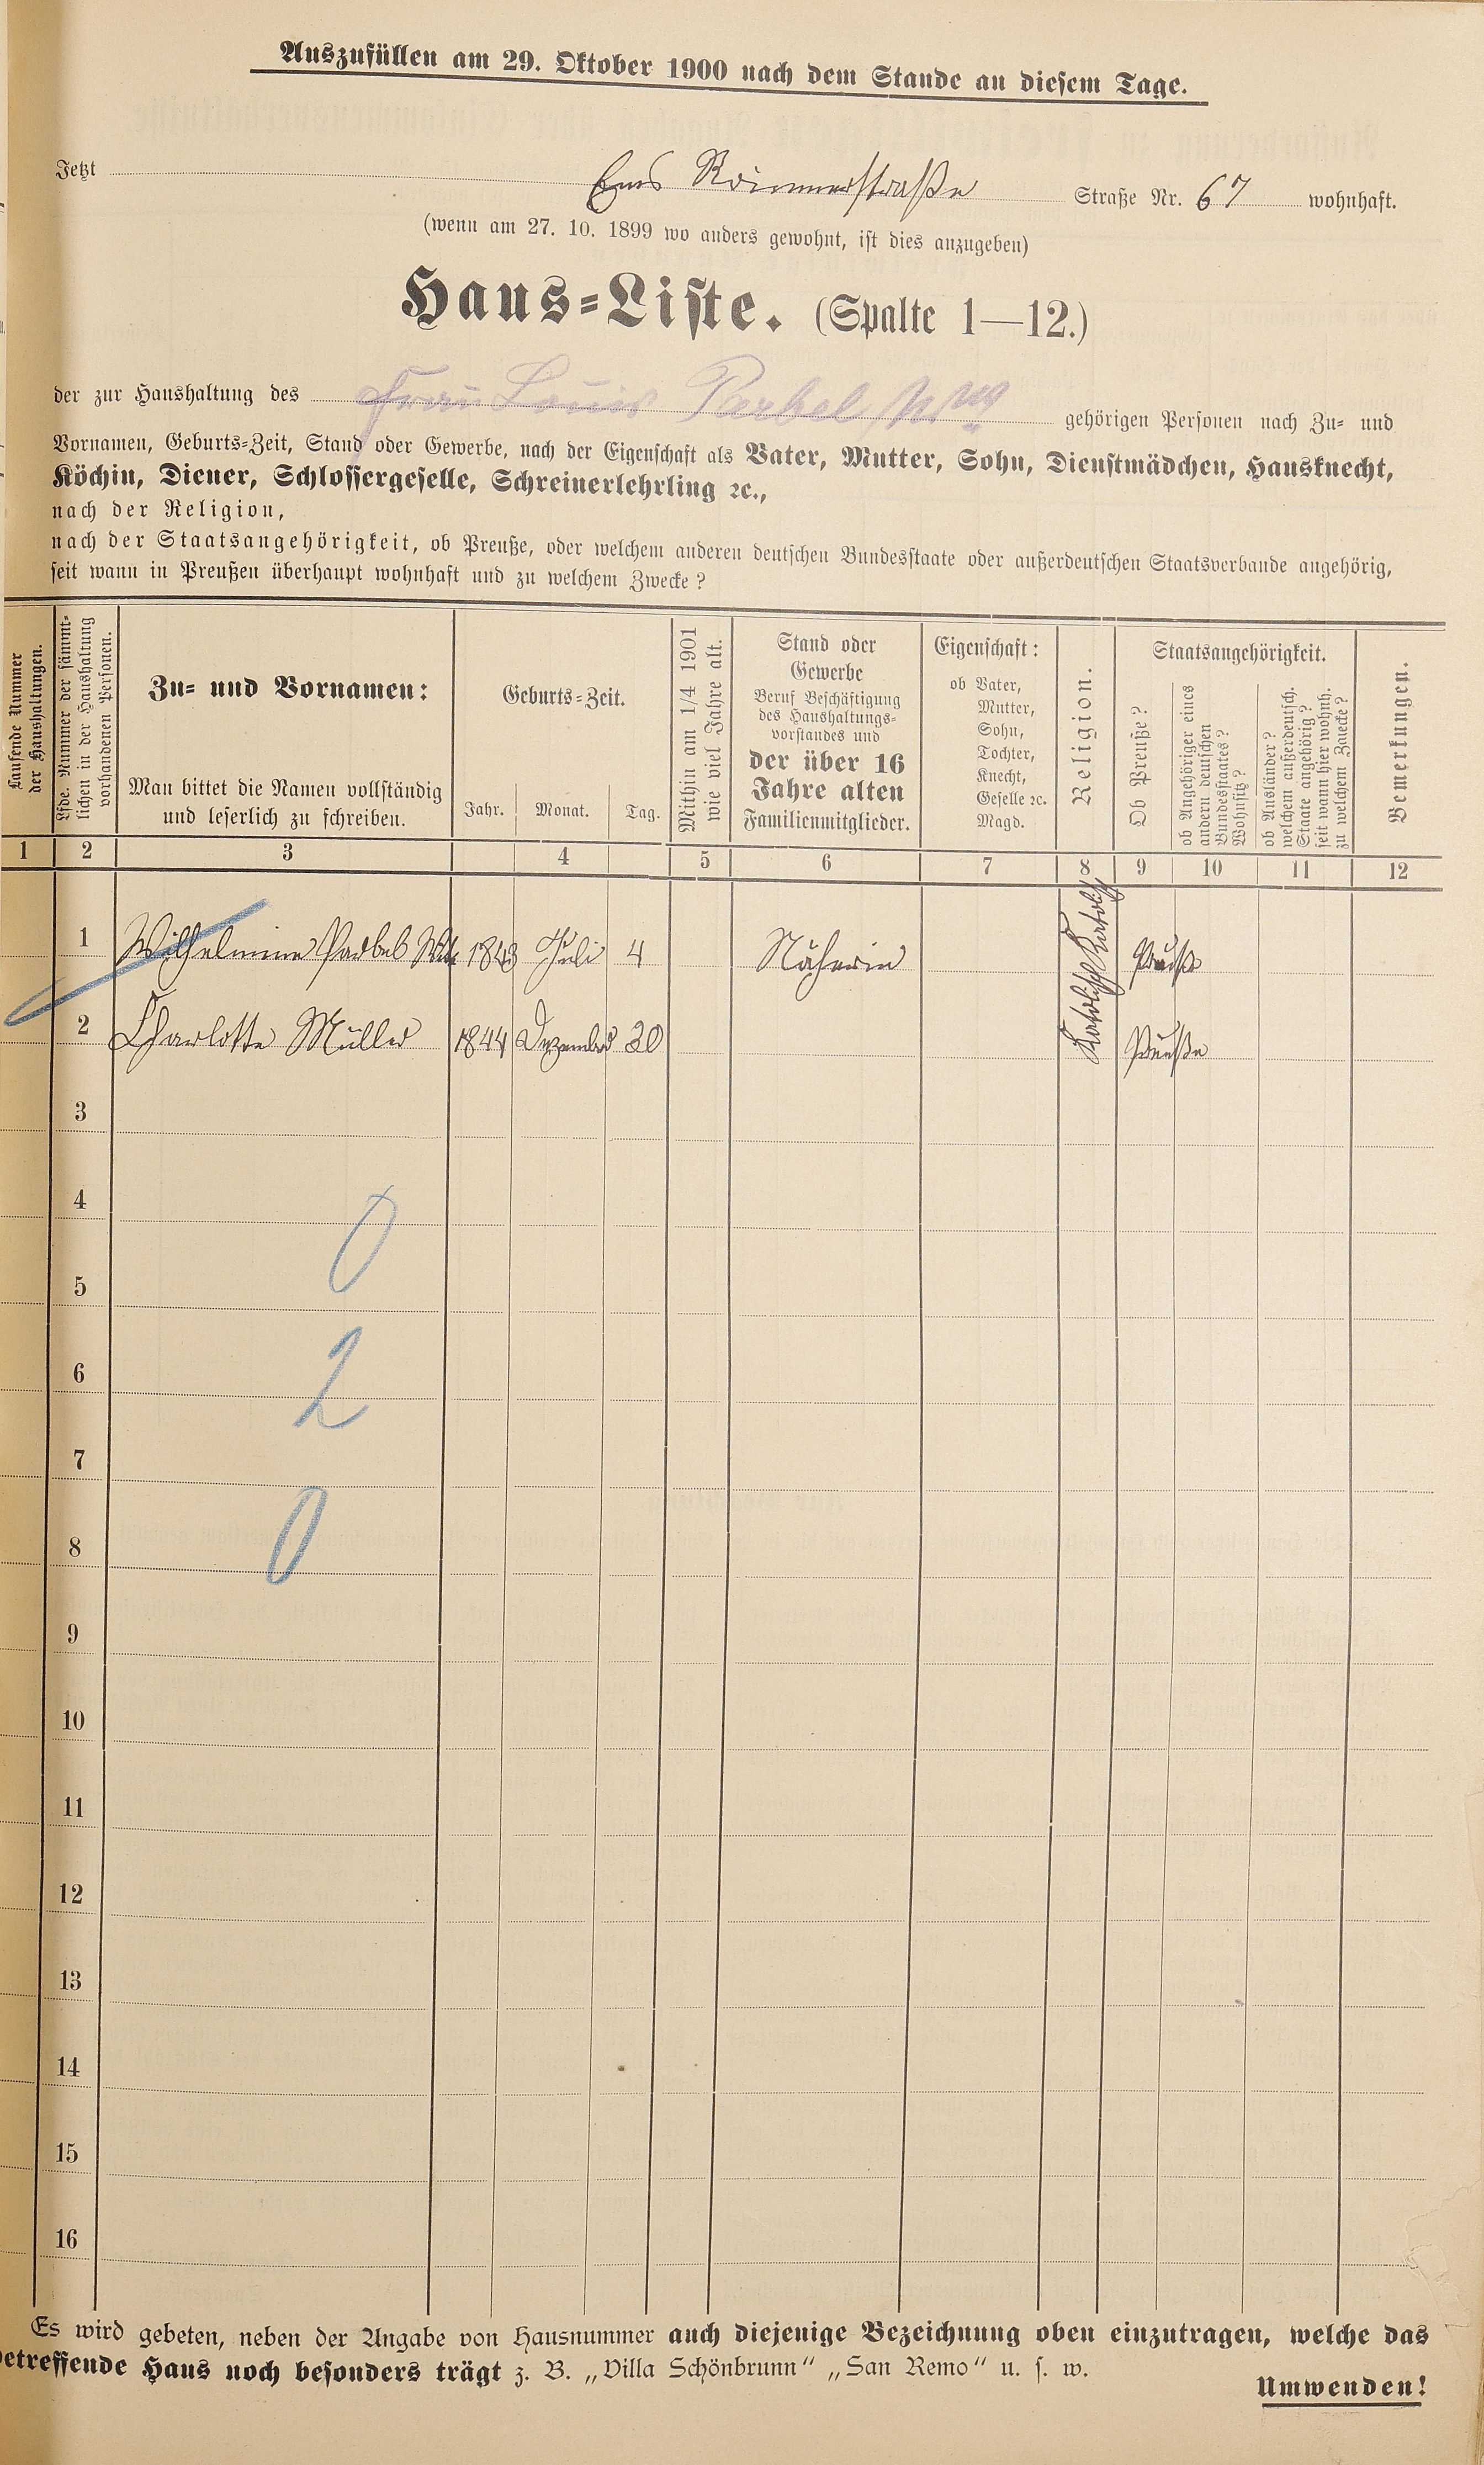 Auszufüllen am 29. Oktober 1900 nach dem Stande an diesem Tage.
Jetzt Ems Römerstraße Straße Nr. 67 wohnhaft.
(wenn am 27. 10. 1899 wo anders gewohnt, ist dies anzugeben)
Haus-Liste. (Spalte 1—12.)
der zur Haushaltung des Frau Louis Parbel Wwe gehörigen Personen nach Zu- und
Vornamen, Geburts-Zeit, Stand oder Gewerbe, nach der Eigenschaft als Vater, Mutter, Sohn, Dienstmädchen, Hausknecht,
Köchin, Diener, Schlossergeselle, Schreinerlehrling ꝛc.,
nach der Religion,
nach der Staatsangehörigkeit, ob Preuße, oder welchem anderen deutschen Bundesstaate oder außerdeutschen Staatsverbande angehörig,
seit wann in Preußen überhaupt wohnhaft und zu welchem Zwecke?
Laufende Nummer
der Haushaltungen.
Lfde. Nummer der sämmt-
lichen in der Haushaltung
vorhandenen Personen.
Zu- und Vornamen:
Man bittet die Namen vollständig
und leserlich zu schreiben.
Geburts-Zeit.
Jahr. Monat. Tag.
Mithin am 1/4 1901
wie viel Jahre alt.
Stand oder
Gewerbe
Beruf Beschäftigung
des Haushaltungs-
vorstandes und
der über 16
Jahre alten
Familienmitglieder.
Eigenschaft:
ob Vater,
Mutter,
Sohn,
Tochter,
Knecht,
Geselle ꝛc.
Magd.
Religion.
Staatsangehörigkeit.
Ob Preuße?
ob Angehöriger eines
andern deutschen
Bundesstaates?
Wohnsitz?
ob Ausländer?
welchem außerdeutsch.
Staate angehörig?
seit wann hier wohnh.
zu welchem Zwecke?
Bemerkungen.
1 2 3 4 5 6 7 8 9 10 11 12
1 Wilhelmine Parbel Wte 1843 Juli 4 Näherin Katolisch Preuße
2 Charlotte Müller 1844 Dezember 30 Katolisch Preuße
3
4
0
5
6
2
7
8
0
9
10
11
12
13
14
15
16
Es wird gebeten, neben der Angabe von Hausnummer auch diejenige Bezeichnung oben einzutragen, welche das
betreffende Haus noch besonders trägt z. B. „Villa Schönbrunn“ „San Remo“ u. s. w.
Umwenden!